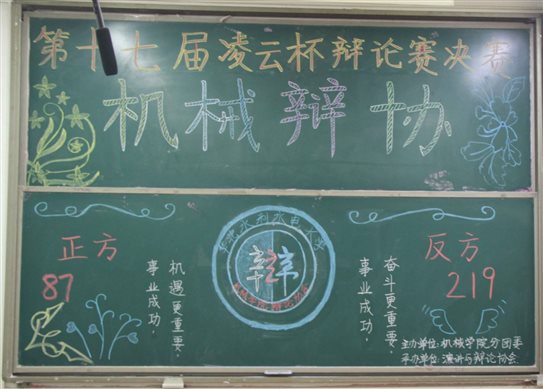 第十七届凌云杯辩论赛决赛
机械辩协
华北水利水电大学
辩
机械学院辩论协会
正方
87
机遇更重要，
事业成功，
反方
219
奋斗更重要，
事业成功，
主办单位：机械学院分团委
承办单位：演讲与辩论协会